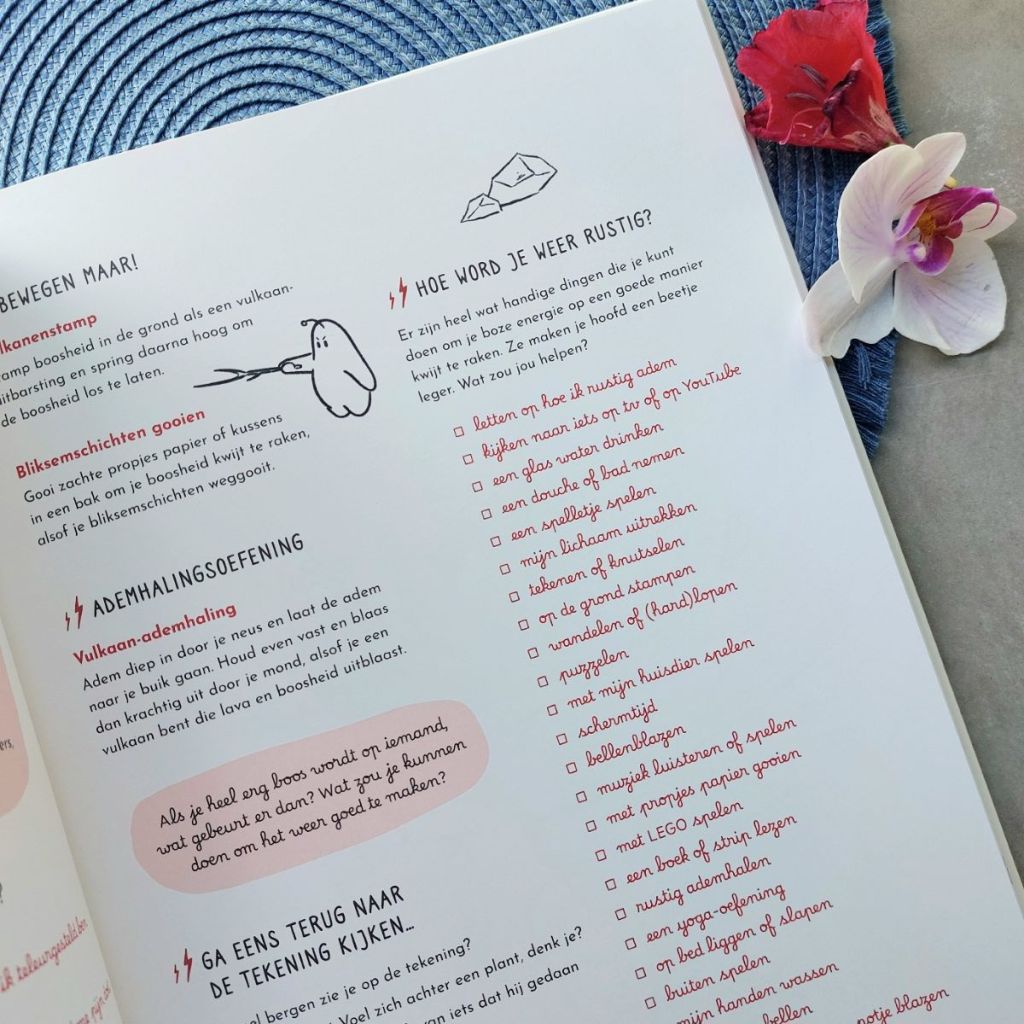 BEWEGEN MAAR!
boosheid in de grond als een vulkaan-
en spring daarna hoog om
de boosheid los te laten.
Bliksemschichten gooien
Gooi zachte propjes papier of kussens
in een bak om je boosheid kwijt te raken,
alsof je bliksemschichten weggooit.
ADEMHALINGSOEFENING
Vulkaan-ademhaling
Adem diep in door je neus en laat de adem
naar je buik gaan. Houd even vast en blaas
dan krachtig uit door je mond, alsof je een
vulkaan bent die lava en boosheid uitblaast.
Als je heel erg boos wordt op iemand,
wat gebeurt er dan? Wat zou je kunnen
doen om het weer goed te maken?
GA EENS TERUG NAAR
DE TEKENING KIJKEN...
bergen zie je op de tekening?
Voel zich achter een plant, denk je?
van iets dat hij gedaan
HOE WORD JE WEER RUSTIG?
Er zijn heel wat handige dingen die je kunt
doen om je boze energie op een goede manier
kwijt te raken. Ze maken je hoofd een beetje
leger. Wat zou jou helpen?
letten op hoe ik rustig adem
kijken naar iets op tv of op YouTube
een glas water drinken
een douche of bad nemen
een spelletje spelen
mijn lichaam uitrekken
tekenen of knutselen
op de grond stampen
wandelen of (hard)lopen
puzzelen
met mijn huisdier spelen
schermtijd
bellenblazen
muziek luisteren of spelen
met propjes papier gooien
met LEGO spelen
een boek of strip lezen
rustig ademhalen
een yoga-oefening
op bed liggen of slapen
buiten spelen
mijn handen wassen
bellen
potje blazen
ik teleurgesteld ben